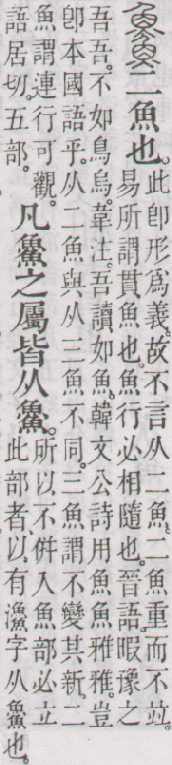 䲆二魚也。
此卽形爲義。故不言从二魚。二魚重而不竝。
易所謂貫魚也。魚行必相隨也。晉語。暇豫之
吾吾。不如鳥烏。韋注。吾讀如魚。韓文公詩用魚魚雅雅。豈
卽本國語乎。从二魚與从三魚不同。三魚謂不變其新。二
魚謂連行可觀。
語居切。五部。
凡䲆之屬皆从䲆。
所以不倂入魚部必立
此部者、以有𤅊字从䲆也。